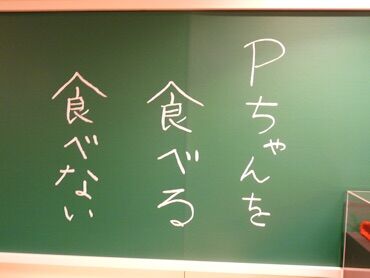 Pちゃんを
食べる
食べない